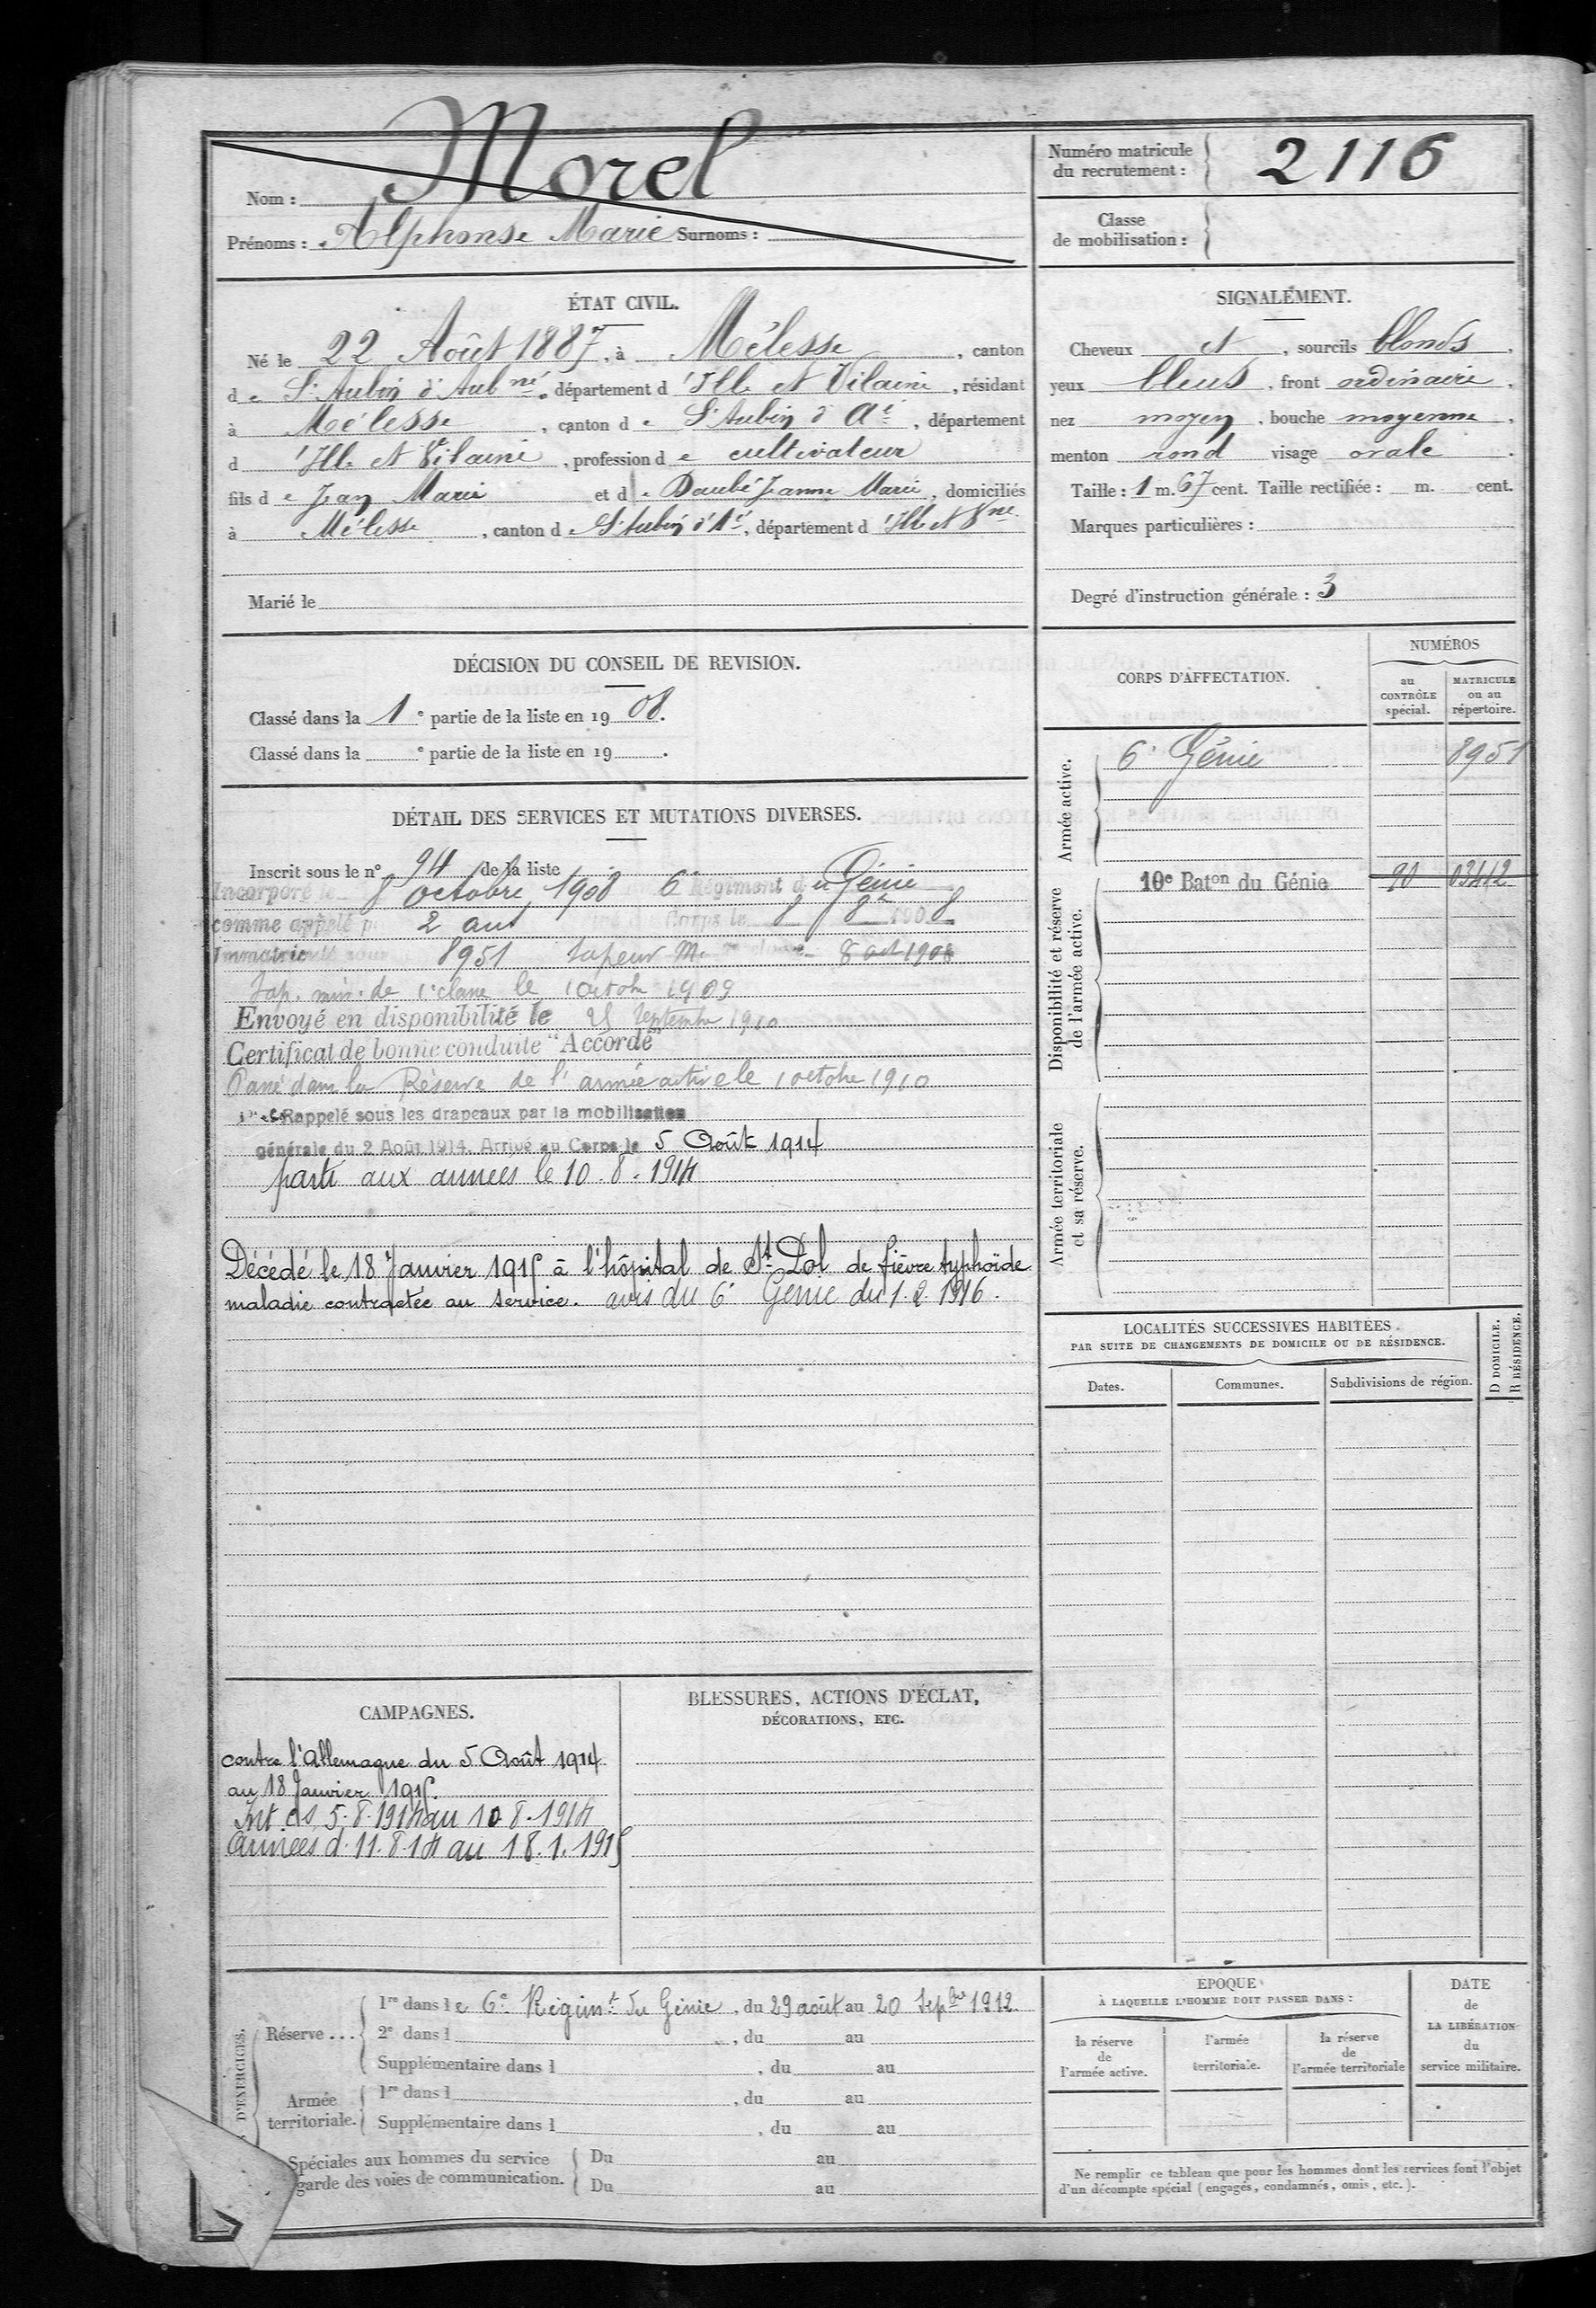 Nom : Morel
Prénoms : Alphonse Marie Surnoms :
Numéro matricule
du recrutement : 2116
Classe
de mobilisation :
ÉTAT CIVIL.
Né le 22 Août 1887, à Mélesse, canton
de St Aubin d'Aubné, département d'Ille et Vilaine, résidant
à Mélesse, canton de St Aubin d'Aé, département
d'Ille et Vilaine, profession de cultivateur
fils de Jean Marie et de Daubé Jeanne Marie, domiciliés
à Mélesse, canton de St Aubin d'Aé, département d'Ille et Vne
Marié le
SIGNALEMENT.
Cheveux et, sourcils blonds,
yeux bleus, front ordinaire,
nez moyen, bouche moyenne,
menton rond visage ovale.
Taille : 1 m. 67 cent. Taille rectifiée : m. cent.
Marques particulières :
Degré d'instruction générale : 3
DÉCISION DU CONSEIL DE REVISION.
Classé dans la 1e partie de la liste en 1908.
Classé dans la e partie de la liste en 19 .
DÉTAIL DES SERVICES ET MUTATIONS DIVERSES.
Inscrit sous le n° 94 de la liste
Incorporé le 8 octobre 1908 6e Régiment du Génie
comme appelé p 2 ans Corps le 8 8bre 1908
Immatriculé sous 8951 sapeur m. 8 oct 1908
Sap. min. de 1e classe le 1 octobre 1909
Envoyé en disponibilité le 25 Septembre 1910
Certificat de bonne conduite "Accordé"
Passé dans la Réserve de l'armée active le 1 octobre 1910
Rappelé sous les drapeaux par la mobilisation
générale du 2 Août 1914. Arrivé au Corps le 5 Août 1914
parti aux armées le 10.8.1914
Décédé le 18 Janvier 1915 à l'hôpital de St Pol de fièvre typhoïde
maladie contractée au service. avis du 6e Génie du 1.2.1916.
CORPS D'AFFECTATION.
NUMÉROS
au
CONTRÔLE
spécial.
MATRICULE
ou au
répertoire.
Armée active.
6e Génie 8951
Disponibilité et réserve
de l'armée active.
10e Baton du Génie 90 03412
Armée territoriale
et sa réserve.
LOCALITÉS SUCCESSIVES HABITÉES.
PAR SUITE DE CHANGEMENTS DE DOMICILE OU DE RÉSIDENCE.
Dates. Communes. Subdivisions de région.
D DOMICILE.
R RÉSIDENCE.
CAMPAGNES.
contre l'Allemagne du 5 Août 1914
au 18 Janvier 1915.
Int. du 5.8.1914 au 10.8.1914
Armées d. 11.8.14 au 18.1.1915
BLESSURES, ACTIONS D'ÉCLAT,
DÉCORATIONS, ETC.
D'EXERCICES.
Réserve ...
1re dans le 6e Régimt du Génie, du 29 août au 20 Sepbre 1912.
2e dans l , du au
Supplémentaire dans l , du au
Armée
territoriale.
1re dans l , du au
Supplémentaire dans l , du au
Spéciales aux hommes du service
garde des voies de communication.
Du au
Du au
EPOQUE
À LAQUELLE L'HOMME DOIT PASSER DANS :
la réserve
de
l'armée active.
l'armée
territoriale.
la réserve
de
l'armée territoriale
DATE
de
LA LIBÉRATION
du
service militaire.
Ne remplir ce tableau que pour les hommes dont les services font l'objet
d'un décompte spécial (engagés, condamnés, omis, etc.).